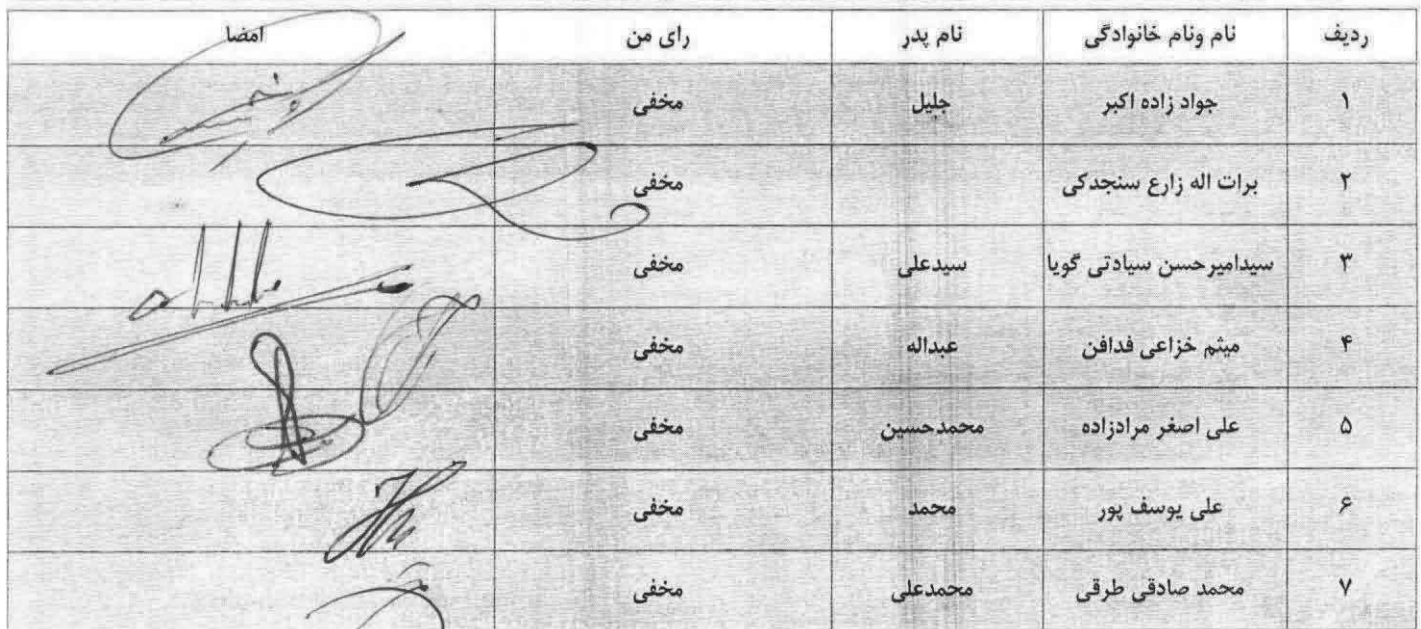 ردیف نام ونام خانوادگی نام پدر رای من امضا
۱ جواد زاده اکبر جلیل مخفی
۲ برات اله زارع سنجدکی مخفی
۳ سیدامیرحسن سیادتی گویا سیدعلی مخفی
۴ میثم خزاعی فدافن عبداله مخفی
۵ علی اصغر مرادزاده محمدحسین مخفی
۶ علی یوسف پور محمد مخفی
۷ محمد صادقی طرقی محمدعلی مخفی